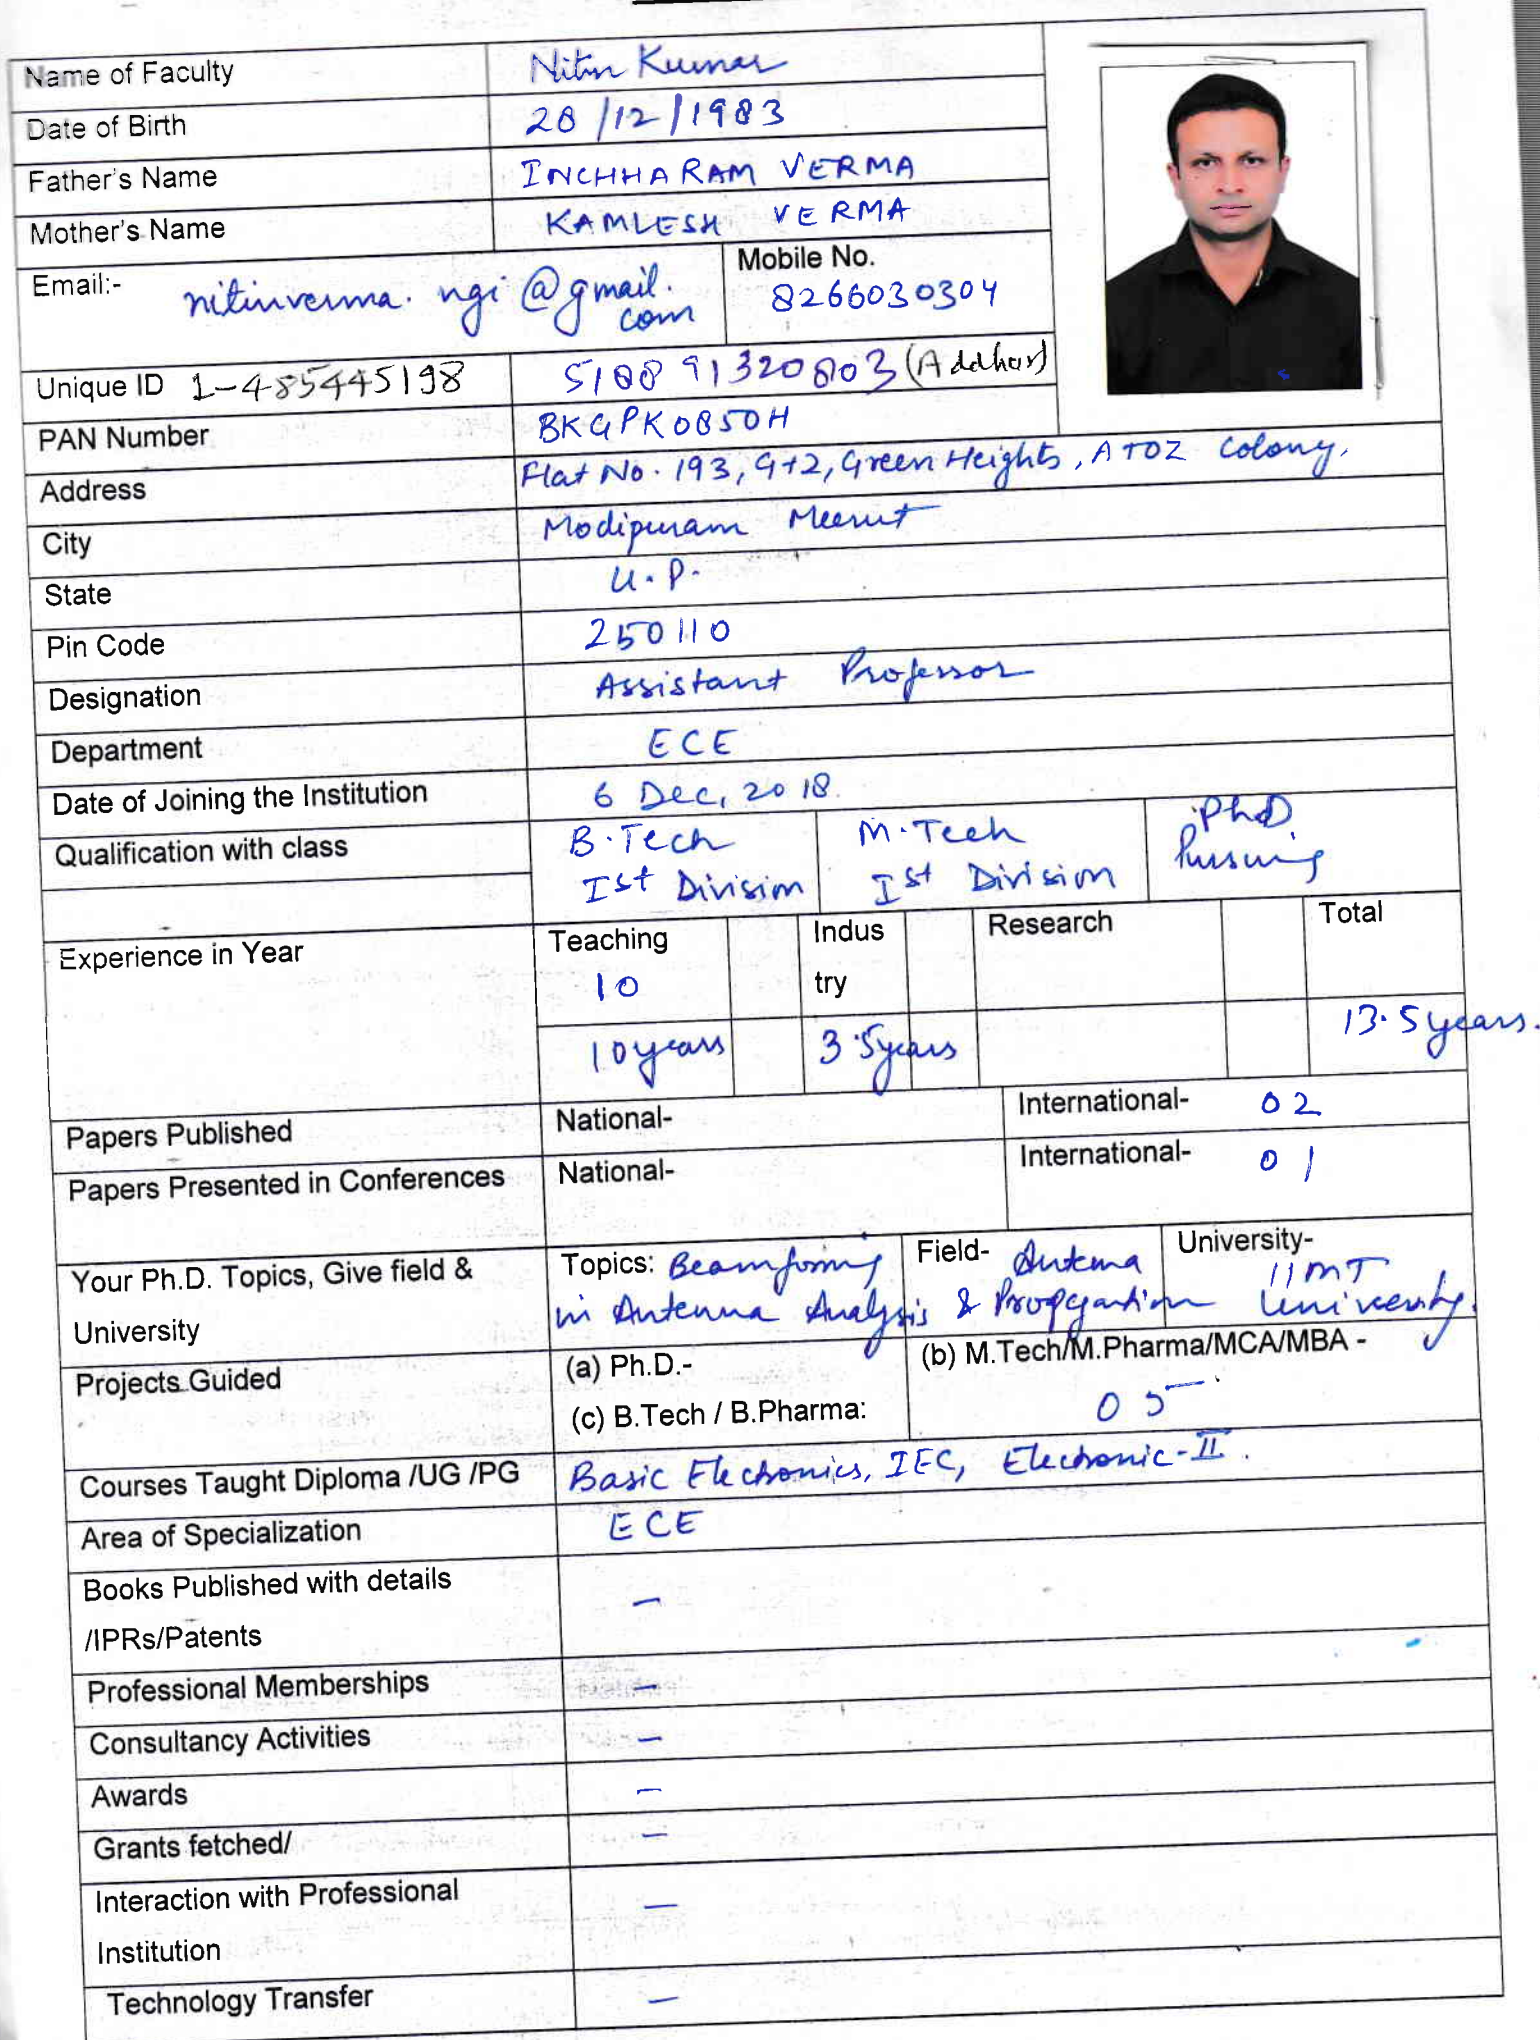 Name of Faculty Nitin Kumar
Date of Birth 28/12/1983
Father's Name INCHHARAM VERMA
Mother's Name KAMLESH VERMA
Email:- nitinverma.ngi@gmail.com
Mobile No. 8266030304
Unique ID 1-485445198 5188 91320803 (Addhar)
PAN Number BKGPK0850H
Address Flat No. 193, G+2, Green Heights, ATOZ Colony,
City Modipuram Meerut
State U.P.
Pin Code 250110
Designation Assistant Professor
Department ECE
Date of Joining the Institution 6 Dec, 2018.
Qualification with class B.Tech M.Tech PhD
Ist Division Ist Division Pursuing
Experience in Year Teaching Indus Research Total
10 try
10years 3.5years 13.5years.
Papers Published National- International- 02
Papers Presented in Conferences National- International- 01
Your Ph.D. Topics, Give field & Topics: Beamforming Field- Antenna University- IIMT
University in Antenna Analysis & Propagation University.
Projects Guided (a) Ph.D.- (b) M.Tech/M.Pharma/MCA/MBA -
(c) B.Tech / B.Pharma: 05
Courses Taught Diploma /UG /PG Basic Electronics, IEC, Electronic-II.
Area of Specialization ECE
Books Published with details —
/IPRs/Patents
Professional Memberships —
Consultancy Activities —
Awards —
Grants fetched/ —
Interaction with Professional —
Institution
Technology Transfer —